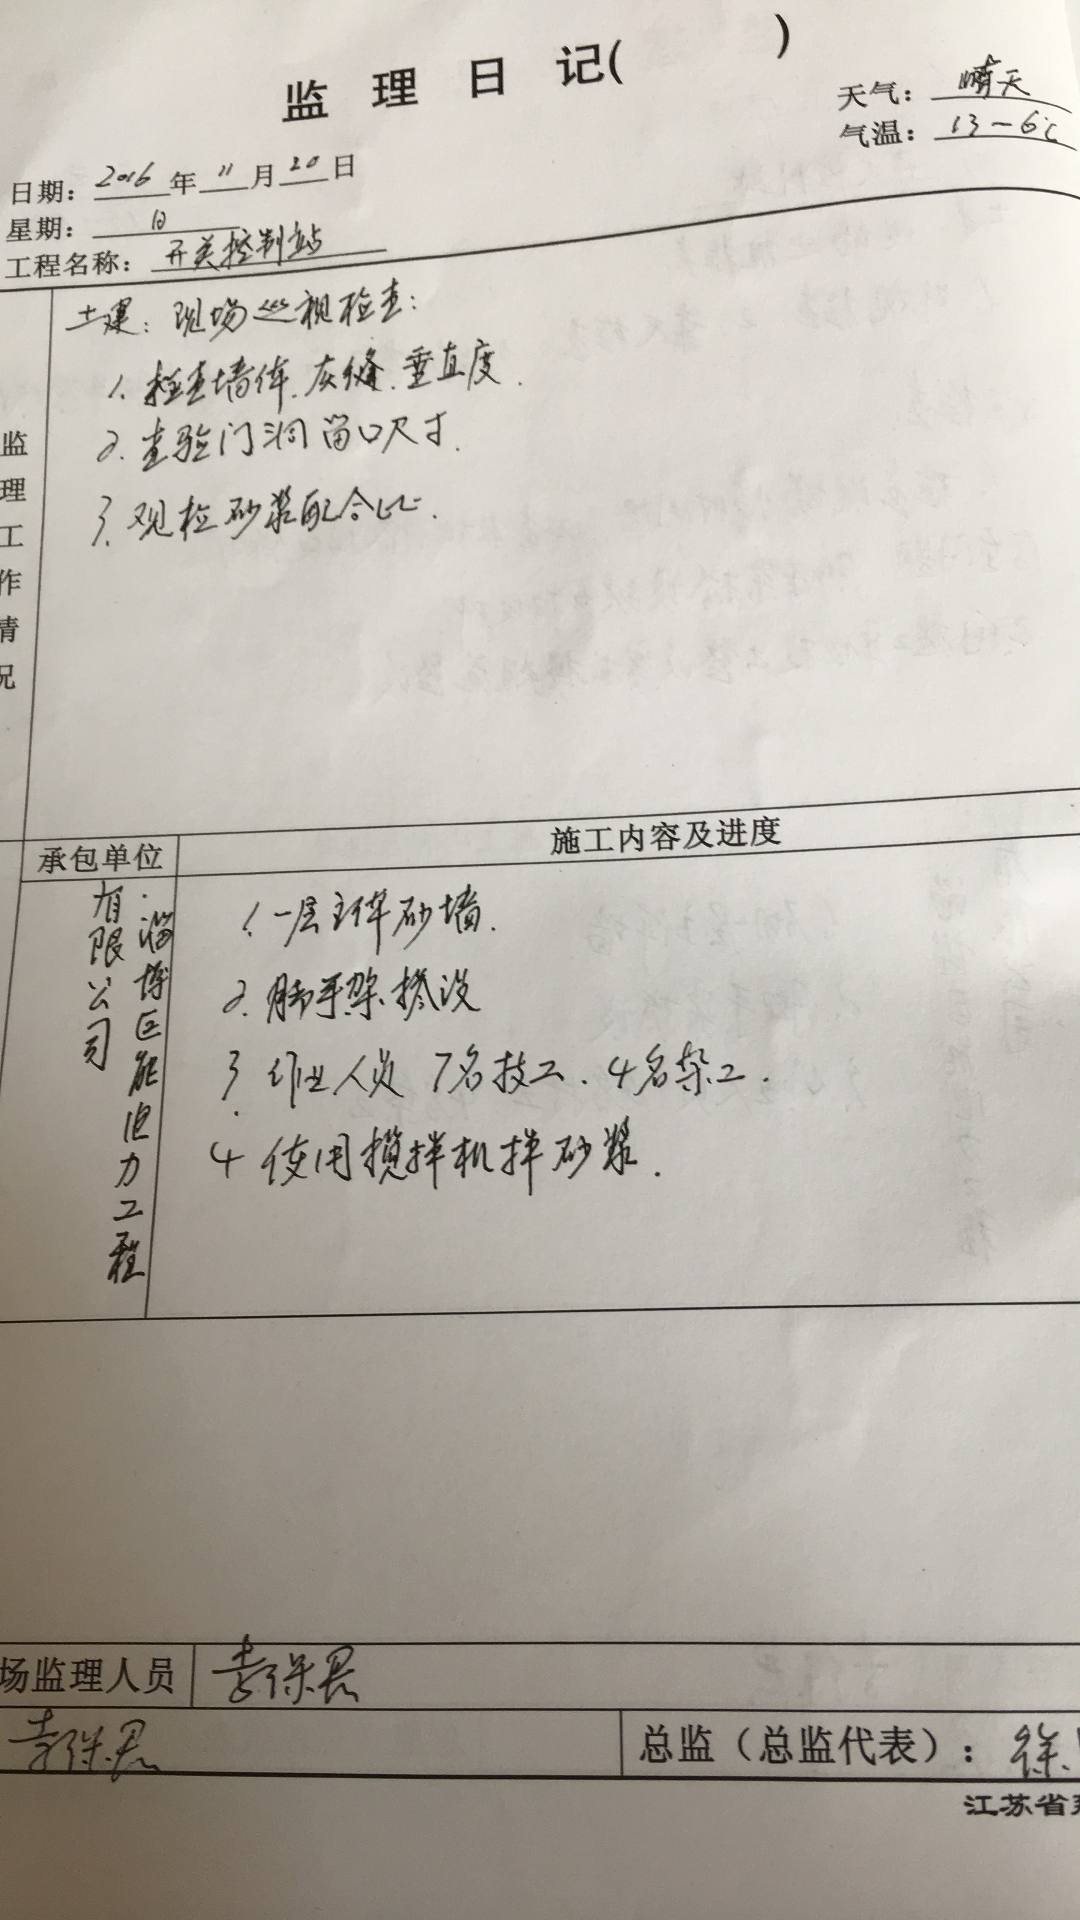 监 理 日 记( )
天气：晴天
气温：13-6℃
日期：2016年11月20日
星期：日
工程名称：开关控制站
监理工作情况
土建：现场巡视检查：
1. 检查墙体、灰缝、垂直度.
2. 查验门洞留口尺寸.
3. 观检砂浆配合比.
承包单位
施工内容及进度
淄博区能电力工程
有限公司
1. 一层主体砂墙.
2. 脚手架搭设
3. 作业人员 7名技工、4名架工.
4 使用搅拌机拌砂浆.
场监理人员
李保君
李保君
总监（总监代表）：徐
江苏省